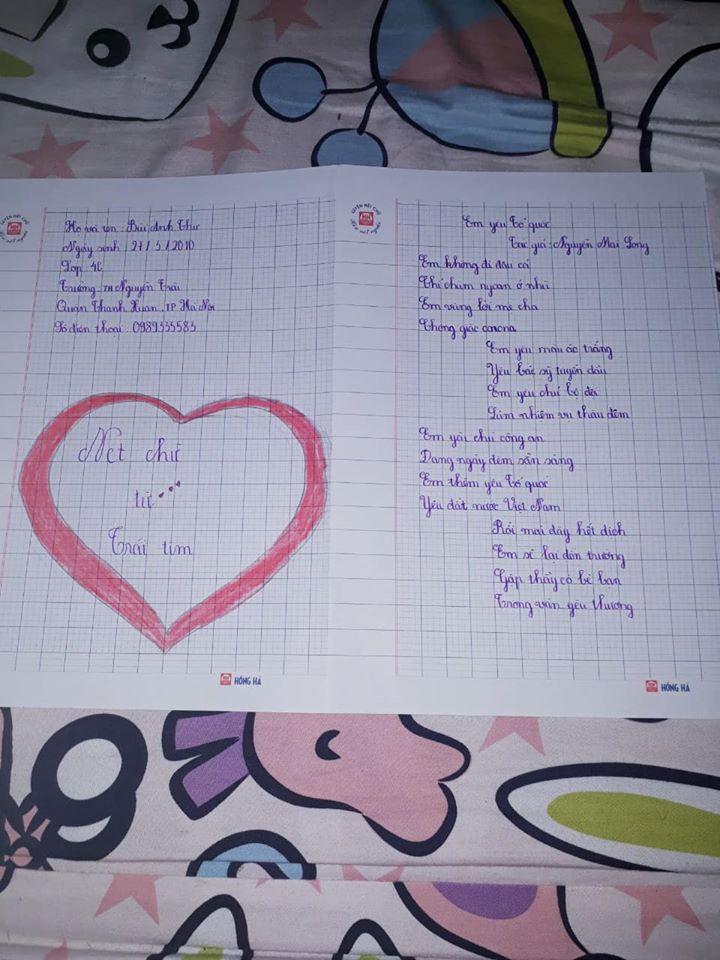 Họ và tên : Bùi Anh Thư
Ngày sinh : 27 / 5 / 2010
Lớp 4C
Trường TH Nguyễn Trãi
Quận Thanh Xuân, TP Hà Nội
Số điện thoại 0989335583
Nét chữ
từ...
Trái tim
HỒNG HÀ
Em yêu Tổ quốc
Tác giả : Nguyễn Mai Long
Em không đi đâu cả
Chỉ chăm ngoan ở nhà
Em vâng lời mẹ cha
Chống giặc corona
Em yêu màu áo trắng
Yêu bác sỹ tuyến đầu
Em yêu chú bộ đội
Làm nhiệm vụ thâu đêm
Em yêu chú công an
Đang ngày đêm sẵn sàng
Em thêm yêu Tổ quốc
Yêu đất nước Việt Nam
Rồi mai đây hết dịch
Em sẽ lại đến trường
Gặp thầy cô bè bạn
Trong vàn yêu thương
HỒNG HÀ